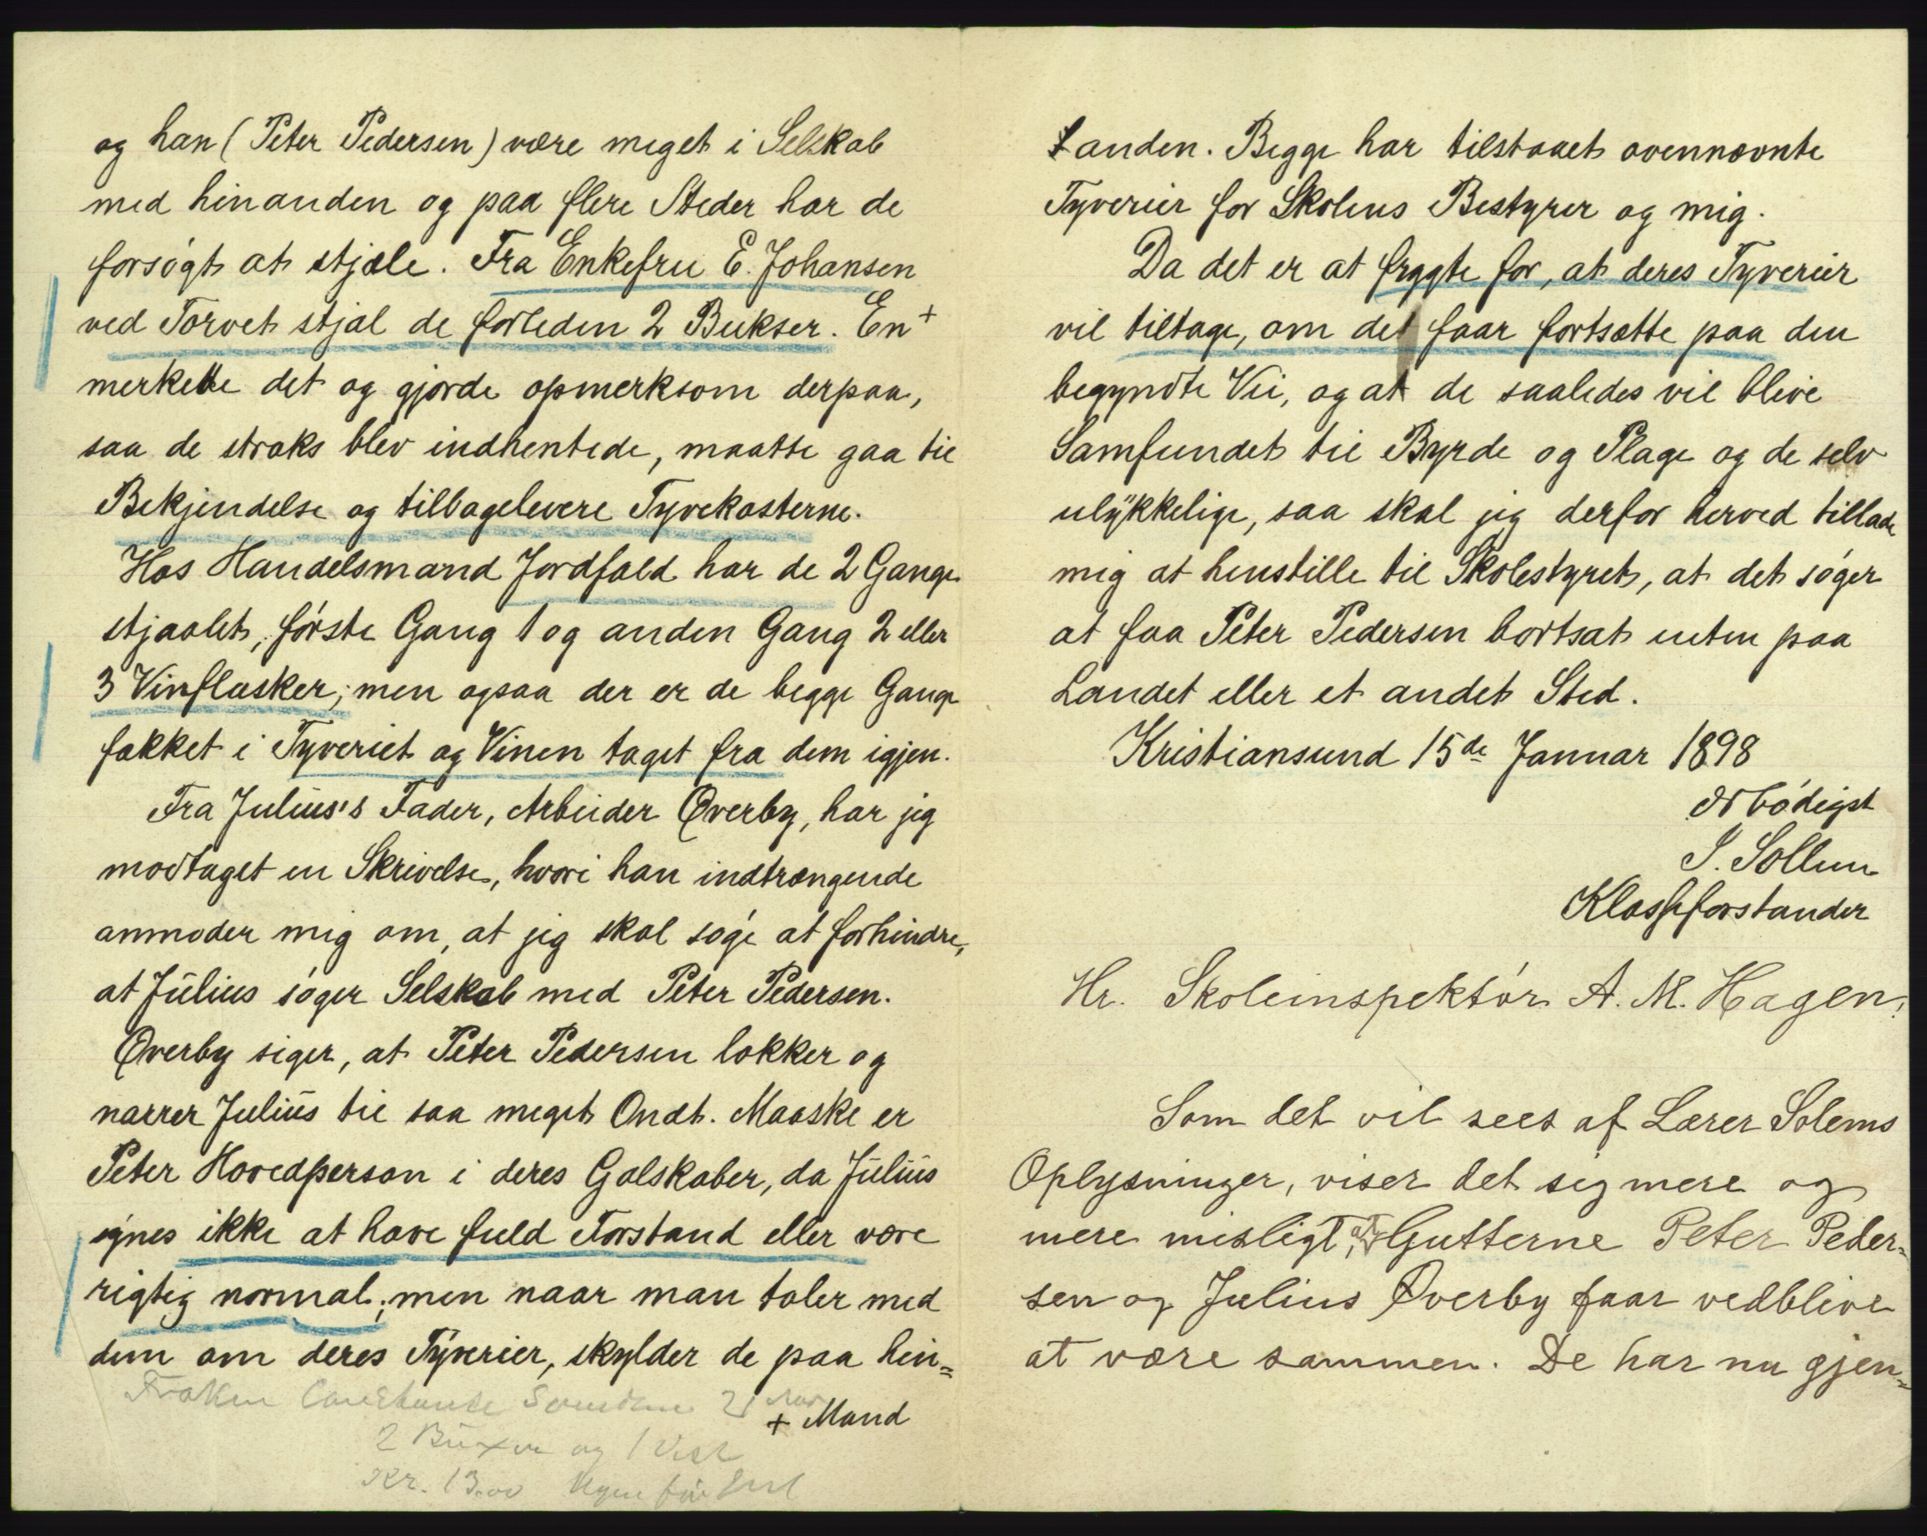 og han (Peter Pedersen) være meget i Selskab
med hinanden og paa flere Steder har de
forsøgt at stjæle. Fra Enkefru E. Johansen
ved Torvet stjal de forleden 2 Bukser. En +
merkede det og gjorde opmerksom derpaa,
saa de straks blev indhentede, maatte gaa til
Bekjendelse og tilbagelevere Tyvekosterne.
Hos Handelsmand Jordfald har de 2 Gange
stjaalet, første Gang 1 og anden Gang 2 eller
3 Vinflasker; men ogsaa der er de begge Gange
fakket i Tyveriet og Vinen taget fra dem igjen.
Fra Julius's Fader, Arbeider Øverby, har jeg
modtaget en Skrivelse, hvori han indtrængende
anmoder mig om, at jeg skal søge at forhindre,
at Julius søger Selskab med Peter Pedersen.
Øverby siger, at Peter Pedersen lokker og
narrer Julius til saa meget Ondt. Maaske er
Peter Hovedperson i deres Galskaber, da Julius
synes ikke at have fuld Forstand eller være
rigtig normal; men naar man taler med
dem om deres Tyverier, skylder de paa hin=
+ Mand
Frøken 2
2 Buxer og 1 Vest
Kr. 13.00
anden. Begge har tilstaaet ovennævnte
Tyverier for Skolens Bestyrer og mig.
Da det er at frygte for, at deres Tyverier
vil tiltage, om det faar fortsætte paa den
begyndte Vei, og at de saaledes vil blive
Samfundet til Byrde og Plage og de selv
ulykkelige, saa skal jeg derfor herved tillade
mig at henstille til Skolestyret, at det søger
at faa Peter Pedersen bortsat enten paa
Landet eller et andet Sted.
Kristiansund 15de Januar 1898
ærbødigst
I. Sollem
Klasseforstander
Hr. Skoleinspektør A. M. Hagen.
Som det vil sees af Lærer Solems
Oplysninger, viser det sig mere og
mere misligt, at Gutterne Peter Peder=
sen og Julius Øverby faar vedblive
at være sammen. De har nu gjen=